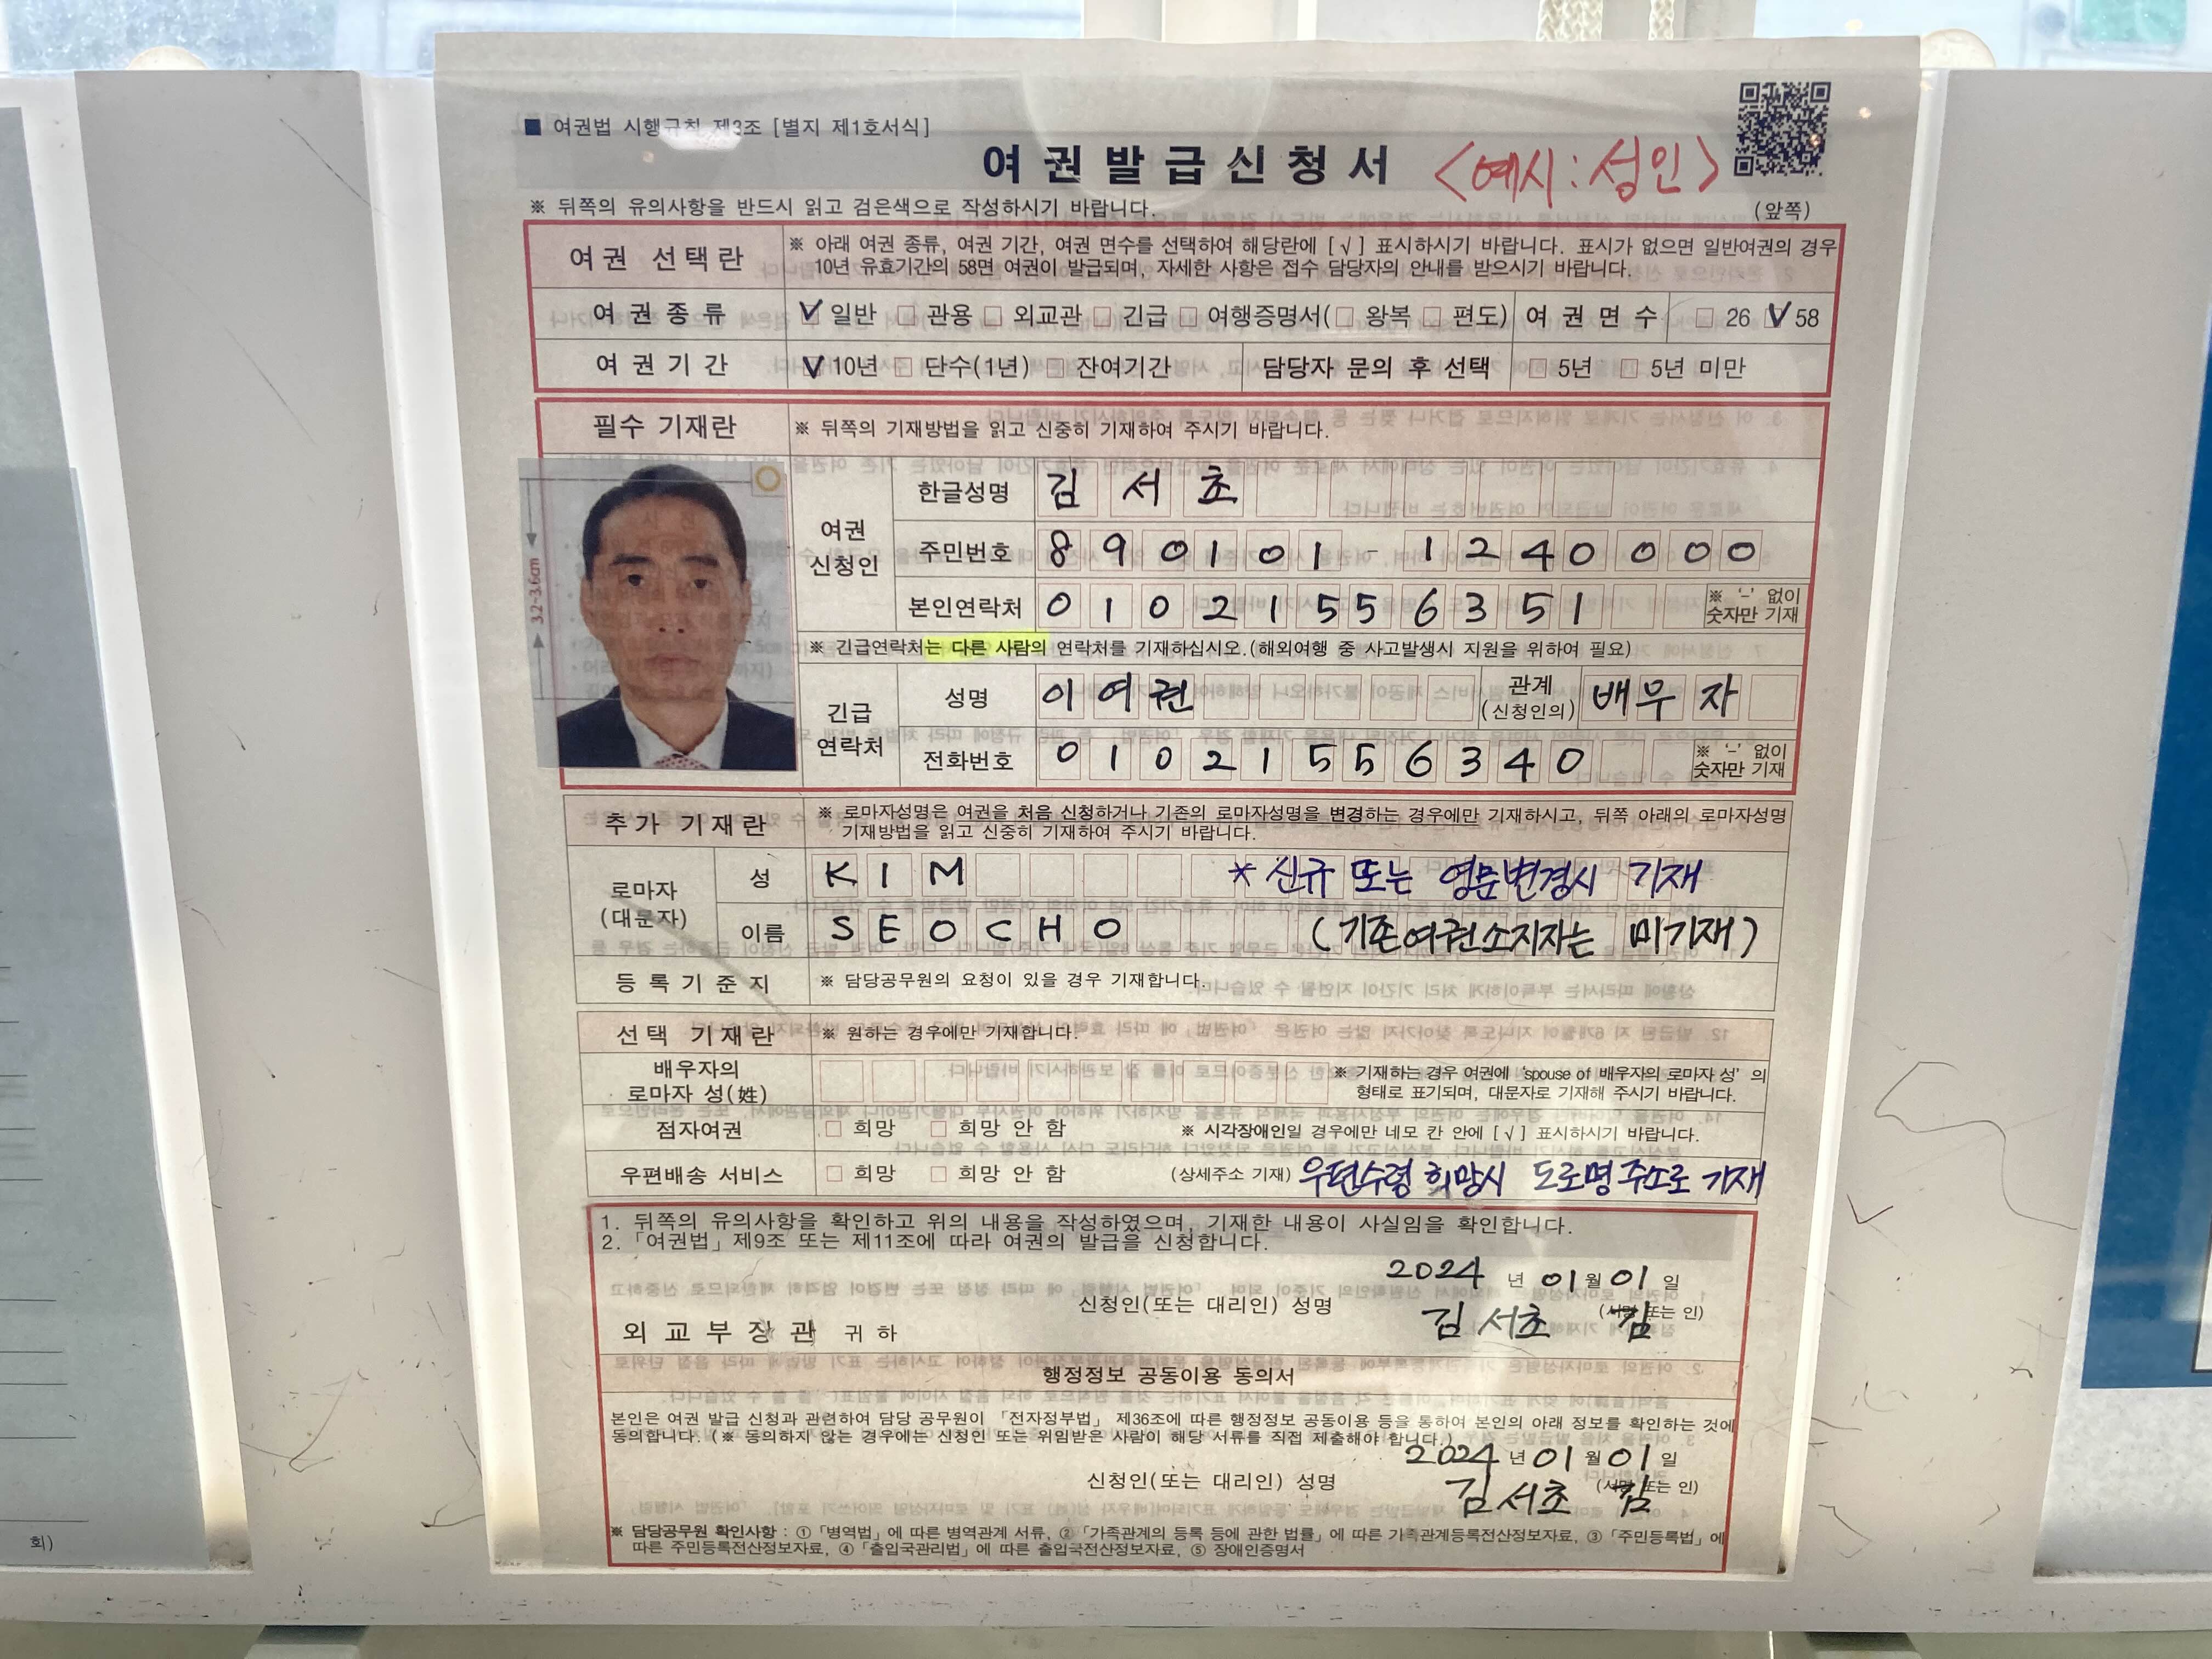 ■ 여권법 시행규칙 제3조 [별지 제1호서식]
여권발급신청서 <예시: 성인>
※ 뒤쪽의 유의사항을 반드시 읽고 검은색으로 작성하시기 바랍니다. (앞쪽)
여권 선택란 ※ 아래 여권 종류, 여권 기간, 여권 면수를 선택하여 해당란에 [√] 표시하시기 바랍니다. 표시가 없으면 일반여권의 경우
10년 유효기간의 58면 여권이 발급되며, 자세한 사항은 접수 담당자의 안내를 받으시기 바랍니다.
여권종류 ☑ 일반 □ 관용 □ 외교관 □ 긴급 □ 여행증명서(□ 왕복 □ 편도) 여권면수 □ 26 ☑ 58
여권기간 ☑ 10년 □ 단수(1년) □ 잔여기간 담당자 문의 후 선택 □ 5년 □ 5년 미만
필수 기재란 ※ 뒤쪽의 기재방법을 읽고 신중히 기재하여 주시기 바랍니다.
3.2-3.6cm
여권
신청인
한글성명 김서초
주민번호 890101-1240000
본인연락처 01021556351 ※ '-' 없이
숫자만 기재
※ 긴급연락처는 다른 사람의 연락처를 기재하십시오.(해외여행 중 사고발생시 지원을 위하여 필요)
긴급
연락처
성명 이여권 관계
(신청인의) 배우자
전화번호 01021556340 ※ '-' 없이
숫자만 기재
추가 기재란 ※ 로마자성명은 여권을 처음 신청하거나 기존의 로마자성명을 변경하는 경우에만 기재하시고, 뒤쪽 아래의 로마자성명
기재방법을 읽고 신중히 기재하여 주시기 바랍니다.
로마자
(대문자)
성 KIM * 신규 또는 영문변경시 기재
이름 SEOCHO (기존여권소지자는 미기재)
등록기준지 ※ 담당공무원의 요청이 있을 경우 기재합니다.
선택 기재란 ※ 원하는 경우에만 기재합니다.
배우자의
로마자 성(姓)
※ 기재하는 경우 여권에 'spouse of 배우자의 로마자 성' 의
형태로 표기되며, 대문자로 기재해 주시기 바랍니다.
점자여권 □ 희망 □ 희망 안 함 ※ 시각장애인일 경우에만 네모 칸 안에 [√] 표시하시기 바랍니다.
우편배송 서비스 □ 희망 □ 희망 안 함 (상세주소 기재) 우편수령 희망시 도로명주소로 기재
1. 뒤쪽의 유의사항을 확인하고 위의 내용을 작성하였으며, 기재한 내용이 사실임을 확인합니다.
2. 「여권법」 제9조 또는 제11조에 따라 여권의 발급을 신청합니다.
2024 년 01 월 01 일
신청인(또는 대리인) 성명 김서초 (서명 또는 인) 김
외교부장관 귀하
행정정보 공동이용 동의서
본인은 여권 발급 신청과 관련하여 담당 공무원이 「전자정부법」 제36조에 따른 행정정보 공동이용 등을 통하여 본인의 아래 정보를 확인하는 것에
동의합니다. (※ 동의하지 않는 경우에는 신청인 또는 위임받은 사람이 해당 서류를 직접 제출해야 합니다.)
2024 년 01 월 01 일
신청인(또는 대리인) 성명 김서초 (서명 또는 인) 김
※ 담당공무원 확인사항 : ① 「병역법」에 따른 병역관계 서류, ② 「가족관계의 등록 등에 관한 법률」에 따른 가족관계등록전산정보자료, ③ 「주민등록법」에
따른 주민등록전산정보자료, ④ 「출입국관리법」에 따른 출입국전산정보자료, ⑤ 장애인증명서
회)